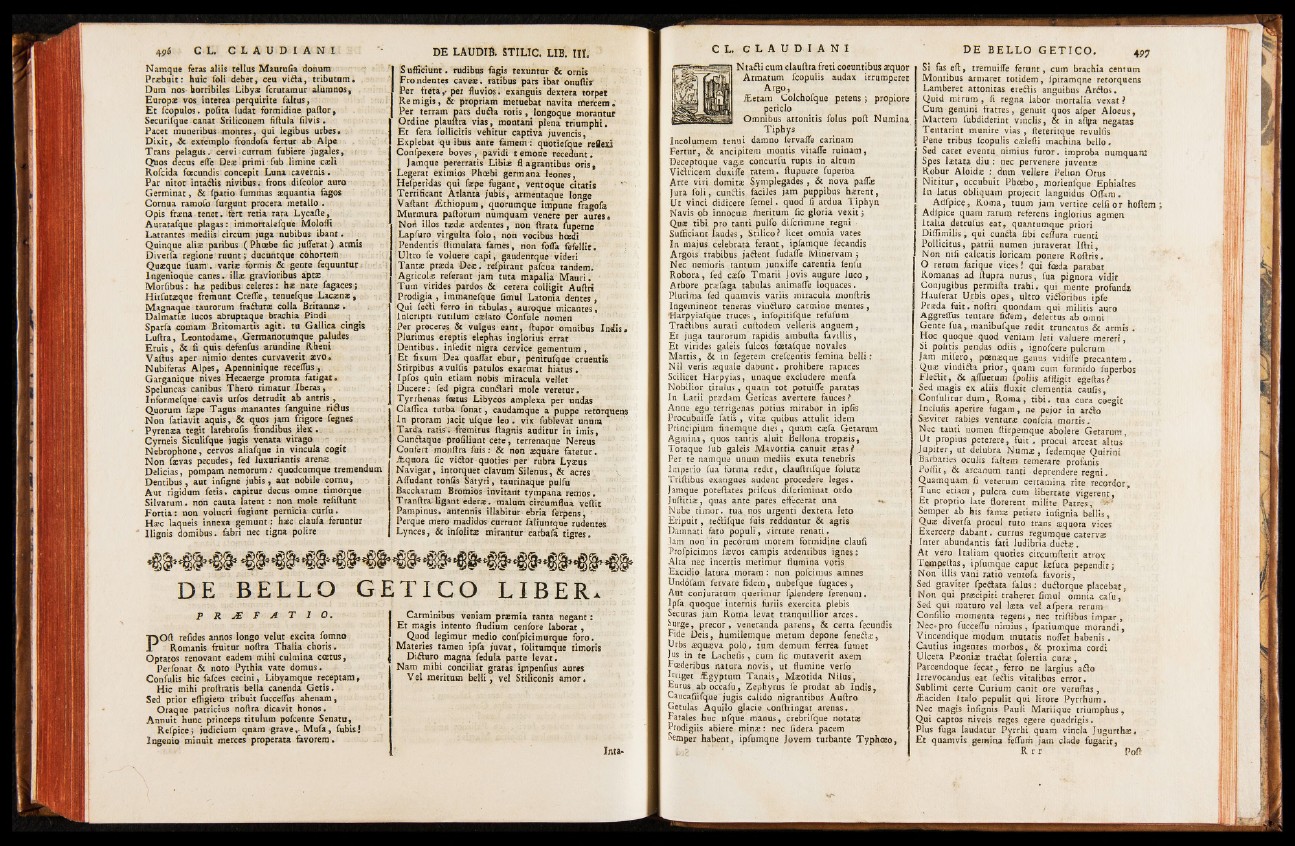 496 CL. CLAUDIANI
Namque feras aliis tellus Maurusia donum
Præbuit: huic soli debet, ceu victa, tributum.
Dum nos horribiles Libyæ scrutamur alumnos,
Europæ vos interea perquirite saltus,
Et scopulos. posita ludat formidine pastor,
Securisque canat Stiliconem fistula silvis.
Pacet muneribus montes, qui legibus urbes.
Dixit, & extemplo frondosa fertur ab Alpe
Trans pelagus. cervi currum subiere jugales,
Quos decus esse Deæ primi sub limine cæli
Roscida fœcundis concepit Luna cavernis.
Par nitor intactis nivibus. frons discolor auro
Germinat, & spatio summas æquantia fagos
Cornua ramoso surgunt procera metallo.
Opis fræna tenet. fert retia rara Lycaste,
Auratasque plagas: immortalesque Molossi
Latrantes mediis circum juga nubibus ibant.
Quinque aliæ paribus (Phœbe sic jusserat) armis
Diversa regione ruunt; ducuntque cohortem
Quæque suam. variæ formis & gente sequuntur
Ingenioque canes. illæ gravioribus aptæ
Morsibus: hæ pedibus celeres: hæ nare sagaces;
Hirsutæque fremunt Cressæ, tenuesque Lacænæ,
Magnaque taurorum fracturæ colla Britannæ.
Dalmatiæ lucos abruptaque brachia Pindi
Sparsa comam Britomartis agit. tu Gallica cingis
Lustra, Leontodame, Germanorumque paludes
Eruis, & si quis defensus arundine Rheni
Vastus aper nimio dentes curvaverit ævo.
Nubiferas Alpes, Apenninique recessus,
Garganique nives Hecaerge promta fatigat.
Speluncas canibus Thero timatur Iberas,
Informesque cavis ursos detrudit ab antris,
Quorum sæpe Tagus manantes sanguine rictus
Non satiavit aquis, & quos jam frigore segnes
Pyrenæa tegit latebrosis frondibus ilex.
Cyrneis Siculisque jugis venata virago
Nebrophone, cervos aliasque in vincula cogit
Non sævas pecudes, sed luxuriantis arenæ
Delicias, pompam nemorum: quodcumque tremendum
Dentibus, aut insigne jubis, aut nobile cornu,
Aut rigidum setis. capitur decus omne timorque
Silvarum. non cauta latent: non mole resistunt
Fortia: non volucri fugiunt pernicia cursu.
Hæc laqueis innexa gemunt: hæc clausa feruntur
Ilignis domibus. fabri nec tigna polire
DE LAUDIB. STILIC. LIB. III.
Sufficiunt. rudibus fagis texuntur & ornis
Frondentes caveæ. ratibus pars ibat onustis
Per freta, per fluvios. exanguis dextera torpet
Remigis, & propriam metuebat navita mercem.
Per terram pars ducta rotis, longoque morantur
Ordine plaustra vias, montani plena triumphi.
Et fera sollicitis vehitur captiva juvencis,
Explebat quibus ante famem: quotiesque reflexi
Conspexere boves, pavidi temone recedunt.
Jamque pererratis Libiæ flagrantibus oris,
Legerat eximios Phœbi germana leones,
Hesperidas qui sæpe fugant, ventoque citatis
Terrificant Atlanta jubis, armentaque longe
Vastant Æthiopum, quorumque impune fragosa
Murmura pastorum numquam venere per aures.
Non illos tædæ ardentes, non strata superne
Lapsuro virgulta solo, non vocibus hœdi
Pendentis stimulata fames, non fossa fefellit.
Ultro se voluere capi, gaudentque videri
Tantæ præda Deæ. respirant pascua tandem.
Agricolæ referant jam tuta mapalia Mauri.
Tum virides pardos & cetera colligit Austri
Prodigia, immanesque simul Latonia dentes,
Qui secti ferro in tabulas, auroque micantes,
Inscripti rutilum cælato Consule nomen
Per proceres & vulgus eant, stupor omnibus Indis.
Plurimus ereptis elephas inglorius errat
Dentibus. insedit nigra cervice gementum,
Et fixum Dea quassat ebur, penitusque cruentis
Stirpibus avulsis patulos exarmat hiatus.
Ipsos quin etiam nobis miracula vellet
Ducere: sed pigra cunctari mole veretur.
Tyrrhenas fœtus Libycos amplexa per undas
Classica turba sonat, caudamque a puppe retorquens
In proram jacit usque leo. vix sublevat unum
Tarda ratis. fremitus stagnis auditur in imis,
Cunctaque prosiliunt cete, terrenaque Nereus
Confert monstra suis: & non æquare fatetur.
Æquora sic victor quoties per rubra Lyæus
Navigat, intorquet clavum Silenus, & acres
Assudant tonsis Satyri, taurinaque pulsu
Baccharum Bromios invitant tympana remos.
Transtra ligant ederæ. malum circumflua vestit
Pampinus, antennis illabitur ebria serpens,
Perque mero madidos currunt saliuntque rudentes
Lynces, & insolitæ mirantur carbasa tigres.
DE BELLO GETICO LIBER.
PRÆFATIO.
POst resides annos longo velut excita somno
Romanis fruitur nostra Thalia choris.
Optatos renovant eadem mihi culmina cœtus,
Personat & noto Pythia vate domus.
Consulis hic fasces cecini, Libyamque receptam,
Hic mihi prostratis bella canenda Getis.
Sed prior effigiem tribuit successus ahenam,
Oraque patricius nostra dicavit honos.
Annuit hunc princeps titulum poscente Senatu,
Respice; judicium quam grave, Musa, subis!
Ingenio minuit merces properata favorem.
Carminibus veniam præmia tanta negant:
Et magis intento studium censore laborat,
Quod legimur medio conspicimurque foro.
Materies tamen ipsa juvat, solitumque timoris
Dicturo magna sedula parte levat.
Nam mihi conciliat gratas impensius aures
Vel meritum belli, vel Stiliconis amor.
Inta-
CL. CLAUDIANI
INtacti cum claustra freti coeuntibus æquor
Armatum scopulis audax irrumperet
Argo,
Æetam Colchosque petens; propiore
periclo
Omnibus attonitis solus post Numina
Tiphys
Incolumem tenui damno servasse carinam
Fertur, & ancipitem montis vitasse ruinam,
Deceptoque vagæ concursu rupis in altum
Victricem duxisse ratem. stupuere superba
Arte viri domitæ Symplegades, & nova passæ
Jura soli, cunctis faciles jam puppibus hærent,
Ut vinci didicere semel. quod si ardua Tiphyn
Navis ob innocuæ meritum sic gloria vexit;
Quæ tibi pro tanti pulso discrimine regni
Sufficiant laudes, Stilico? licet omnia vates
In majus celebrata ferant, ipsamque secandis
Argois trabibus jactent sudasse Minervam;
Nec nemoris tantum junxisse carentia sensu
Robora, sed cæso Tmarii Jovis augure luco,
Arbore præsaga tabulas animasse loquaces.
Plurima sed quamvis variis miracula monstris
Ingeminent teneras victuro carmine mentes,
Harpyiasque truces, insopitisque refusum
Tractibus aurati custodem velleris anguem,
Et juga taurorum rapidis ambusta favillis,
Et virides galeis sulcos fœtasque novales
Martis, & in segetem crescentis semina belli:
Nil veris æquale dabunt. prohibere rapaces
Scilicet Harpyias, unaque excludere mensa
Nobilior titulus, quam tot potuisse paratas
In Latii prædam Geticas avertere fauces?
Anne ego terrigenas potius mirabor in ipsis
Procubuisse satis, vitæ quibus attulit idem
Principium finemque dies, quam cæsa Getarum
Agmina, quos tantis aluit Bellona tropæis,
Totaque sub galeis Mavortia canuit ætas?
Per te namque unum mediis exuta tenebris
Imperio sua forma redit, claustrisque solutæ
Tristibus exangues audent procedere leges.
Jamque potestates priscus discriminat ordo
Justitiæ, quas ante pares effecerat una
Nube timor. tua nos urgenti dextera leto
Eripuit, tectisque suis redduntur & agris
Damnati fato populi, virtute renati.
Jam non in pecorum morem formidine clausi
Prospicimus sævos campis ardentibus ignes:
Alta nec incertis metimur flumina votis
Excidio latura moram: non poscimus amnes
Undosam servare fidem, nubesque fugaces,
Aut conjuratum querimur splendere serenum.
Ipsa quoque internis furiis exercita plebis
Securas jam Roma levat tranquillior arces.
Surge, precor, veneranda parens, & certa secundis
Fide Deis, humilemque metum depone senectæ,
Urbs æquæva polo. tum demum ferrea sumet
Jus in te Lachesis, cum sic mutaverit axem
Fœderibus natura novis, ut flumine verso
Irriget Ægyptum Tanais, Mæotida Nilus,
Eurus ab occasu, Zephyrus se prodat ab Indis,
Caucasiisque jugis calido nigrantibus Austro
Getulas Aquilo glacie constringat arenas.
Fatales huc usque manus, crebrisque notatæ
Prodigiis abiere minæ: nec sidera pacem
Semper habent, ipsumque Jovem turbante Typhœo,
DE BELLO GETICO. 497
Si fas est, tremuisse ferunt, cum brachia centum
Montibus armaret totidem, spiramque retorquens
Lamberet attonitas erectis anguibus Arctos.
Quid mirum, si regna labor mortalia vexat?
Cum gemini fratres, genuit quos asper Aloeus,
Martem subdiderint vinclis, & in astra negatas
Tentarint munire vias, steteritque revulsis
Pene tribus scopulis cælesti machina bello.
Sed caret eventu nimius furor. improba numquam
Spes lætata diu: nec pervenere juventæ
Robur Aloidæ: dum vellere Pelion Otus
Nititur, occubuit Phœbo, moriensque Ephialtes
In latus obliquum projecit languidus Ossam.
Adspice, Roma, tuum jam vertice celsior hostem;
Adspice quam rarum referens inglorius agmen
Italia detrusus eat, quantumque priori
Dissimilis, qui cuncta sibi cessura ruenti
Pollicitus, patrii numen juraverat Istri,
Non nisi calcatis loricam ponere Rostris.
O rerum fatique vices! qui fœda parabat
Romanas ad stupra nurus, sua pignora vidit
Conjugibus permista trahi. qui mente profunda
Hauserat Urbis opes, ultro victoribus ipse
Præda fuit. nostri quondam qui militis auro
Aggressus tentare fidem, desertus ab omni
Gente sua, manibusque redit truncatus & armis.
Hoc quoque quod veniam leti valuere mereri,
Si positis pendas odiis, ignoscere pulcrum
Jam misero, pœnæque genus vidisse precantem.
Quæ vindicta prior, quam cum formido superbos
Flectit, & assuetum spoliis affligit egestas?
Sed magis ex aliis fluxit clementia causis,
Consulitur dum, Roma, tibi. tua cura coegit
Inclusis aperire fugam, ne pejor in arcto
Sæviret rabies venturæ conscia mortis.
Nec tanti nomen stirpemque abolere Getarum,
Ut propius peterere, fuit. procul arceat altus
Jupiter, ut delubra Numæ, sedemque Quirini
Barbaries oculis saltem temerare profanis
Possit, & arcanum tanti deprendere regni.
Quamquam si veterum certamina rite recordor,
Tunc etiam, pulcra cum libertate vigerent,
Et proprio late florerent milite Patres,
Semper ab his famæ petiere insignia bellis,
Quæ diversa procul tuto trans æquora vices
Exercere dabant. currus regumque catervæ
Inter abundantis fati ludibria ductæ.
At vero Italiam quoties circumstetit atrox
Tempestas, ipsumque caput læsura pependit;
Non illis vani ratio ventosa favoris,
Sed graviter spectata salus: ductorque placebat,
Non qui præcipiti traheret simul omnia casu,
Sed qui maturo vel læta vel aspera rerum
Consilio momenta regens, nec tristibus impar,
Nec pro successu nimius, spatiumque morandi,
Vincendique modum mutatis nosset habenis.
Cautius ingentes morbos, & proxima cordi
Ulcera Pæoniæ tractat solertia curæ,
Parcendoque secat, ferro ne largius acto
Irrevocandus eat sectis vitalibus error.
Sublimi certe Curium canit ore vetustas,
Æaciden Italo pepulit qui litore Pyrrhum.
Nec magis insignis Pauli Mariique triumphus,
Qui captos niveis reges egere quadrigis.
Plus fuga laudatur Pyrrhi quam vincla Jugurthæ.
Et quamvis gemina fessum jam clade fugarit,
Rrr Post